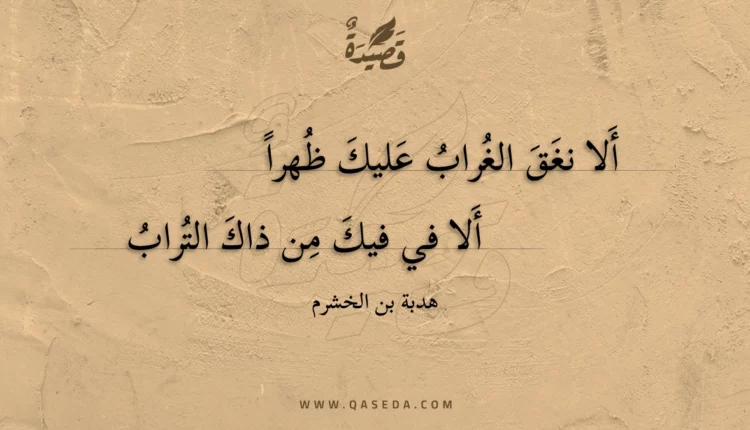 قَصِيْدَةٌ
أَلا نغَقَ الغُرابُ عَليكَ ظُهراً
أَلا في فيكَ مِن ذاكَ التُرابُ
هدبة بن الخشرم
WWW.QASEDA.COM